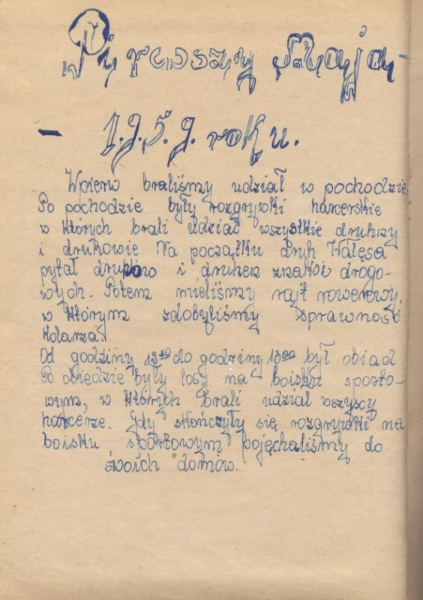 Pierwszy Maja -
- 1.9.5.9. roku.
Wpierw braliśmy udział w pochodzie
Po pochodzie były rozgrywki harcerskie
w których brali udział wszystkie druhny
i druhowie. Na początku druh Wałęsa
pytał druhów i druhen znaków drogo-
wych. Potem mieliśmy rajt rowerowy,
w którym zdobyliśmy sprawność
kolarza.
Od godziny 12⁰⁰ do godziny 13⁰⁰ był obiad
Po obiedzie były losy na boisku sporto-
wym, w których brali udział wszyscy
harcerze. Gdy skończyły się rozgrywki na
boisku sportowym pojechaliśmy do
swoich domów.